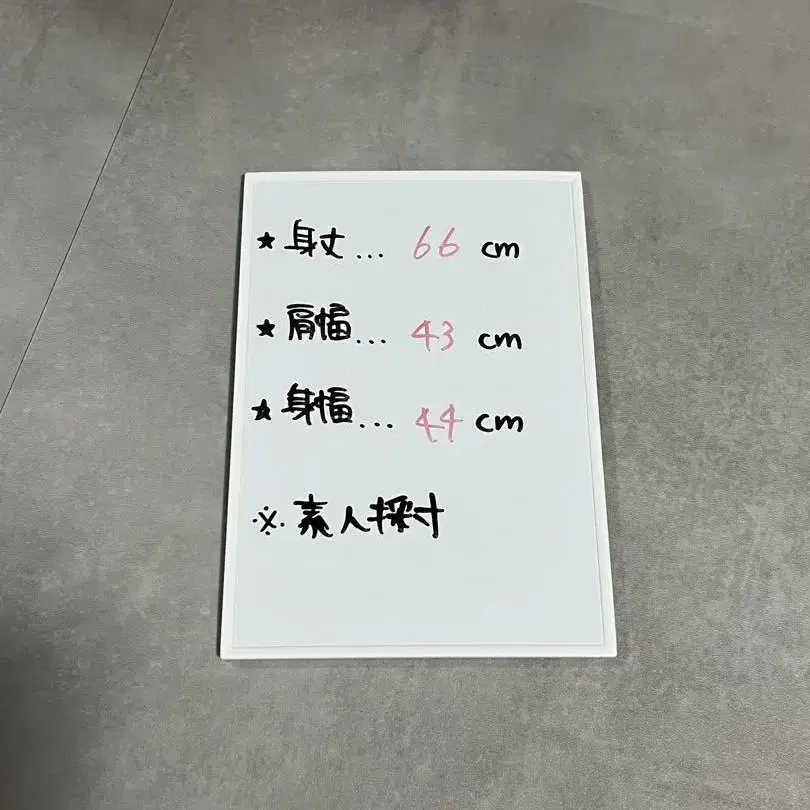 ★身丈... 66 cm
★肩幅... 43 cm
★身幅... 44 cm
※素人採寸